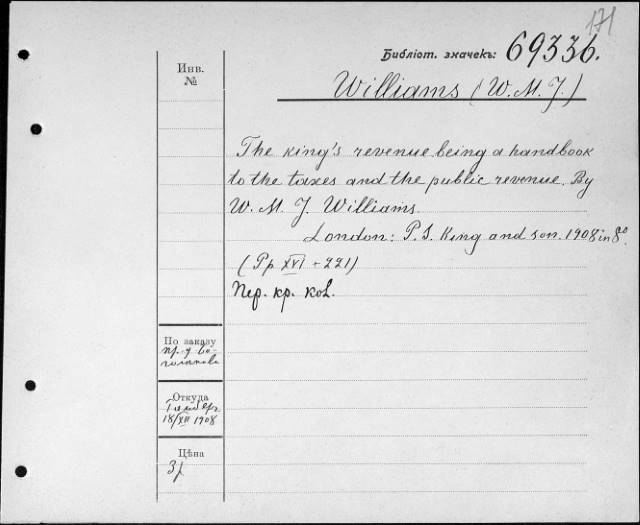 171
Библіот. значекъ: 69336.
Инв.
№
Williams (W. M. J.)
The king's revenue being a handbook
to the taxes and the public revenue. By
W. M. J. Williams.
London: P. S. King and son. 1908 in 8º.
(Pp XVI + 221)
Пер. кр. кол.
По заказу
пр-д Бо-
голѣпова
Откуда
18/XII 1908
Цѣна
3р